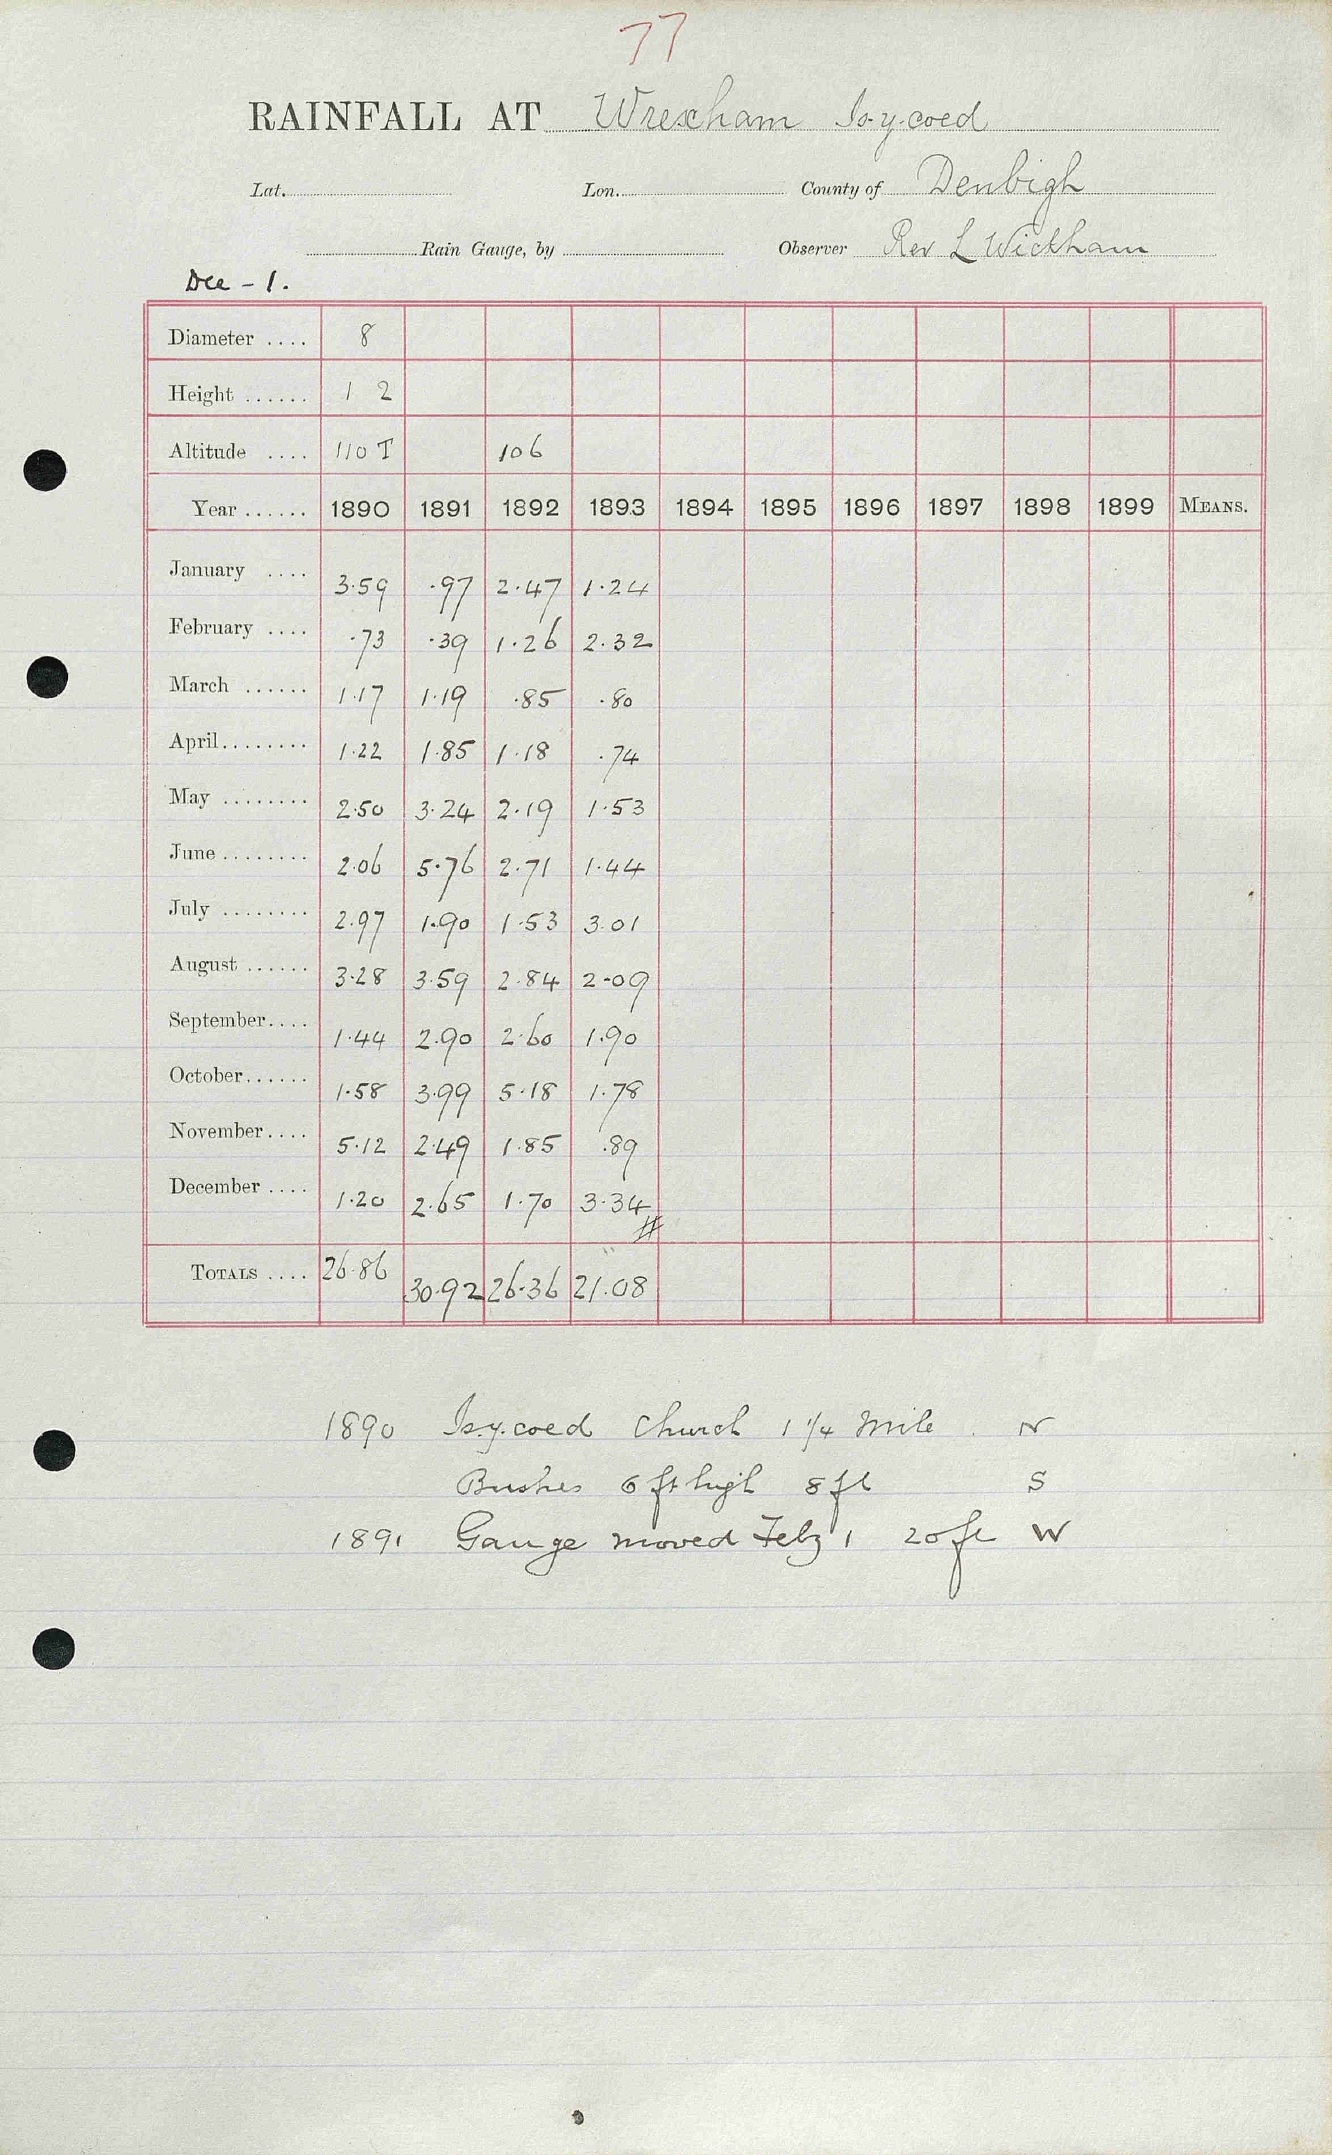 77
RAINFALL AT Wrexham Is-y-coed
Lat. Lon. County of Denbigh
Rain Gauge, by Observer Rev L Wickham
Dee - 1.
Diameter .... 8
Height ...... 1 2
Altitude .... 110 T 106
Year ...... 1890 1891 1892 1893 1894 1895 1896 1897 1898 1899 MEANS.
January .... 3.59 .97 2.47 1.24
February .... .73 .39 1.26 2.32
March ...... 1.17 1.19 .85 .80
April........ 1.22 1.85 1.18 .74
May ........ 2.50 3.24 2.19 1.53
June ........ 2.06 5.76 2.71 1.44
July ........ 2.97 1.90 1.53 3.01
August ...... 3.28 3.59 2.84 2.09
September.... 1.44 2.90 2.60 1.90
October...... 1.58 3.99 5.18 1.78
November.... 5.12 2.49 1.85 .89
December .... 1.20 2.65 1.70 3.34
TOTALS .... 26.86 30.92 26.36 21.08
1890 Is.y.coed Church 1 1/4 Mile N
Bushes 6 ft high 8 ft S
1891 Gauge moved Feby 1 20 ft W